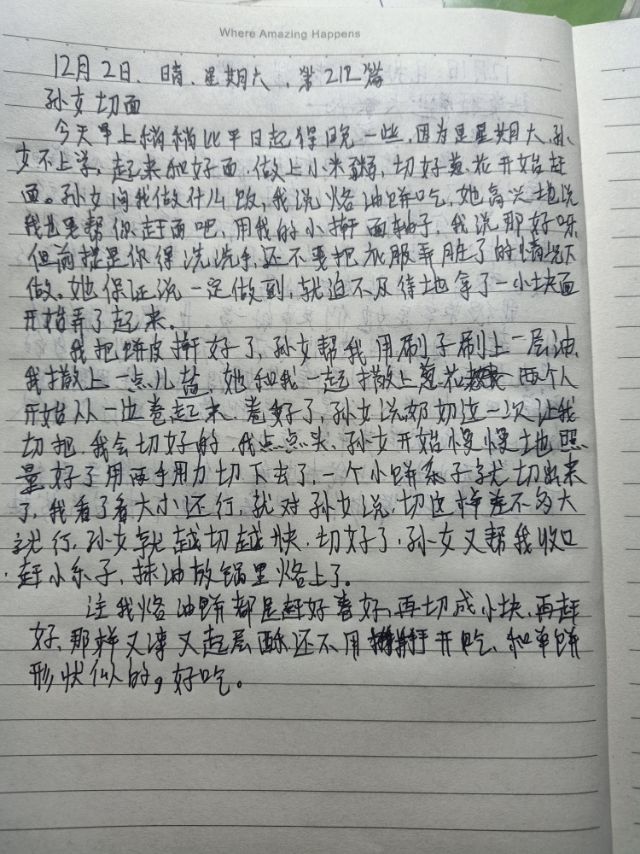 Where Amazing Happens
12月2日、晴、星期六、第212篇
孙女切面
今天早上稍稍比平日起得晚一些,因为是星期六,孙
女不上学,起来和好面,做上小米粥,切好葱花开始赶
面。孙女问我做什么饭,我说烙油饼吃,她高兴地说
我也要帮你赶面吧,用我的小擀面轴子,我说那好呀
但前提是你得洗洗手,还不要把衣服弄脏了的情况下
做。她保证说一定做到,就迫不及待地拿了一小块面
开始弄了起来。
我把饼皮擀好了,孙女帮我用刷子刷上一层油,
我撒上一点儿盐,她和我一起撒上葱花 两个人
开始从一边卷起来,卷好了,孙女说奶奶这一次让我
切把,我会切好的,我点点头,孙女开始慢慢地
量好了用两手用力切下去了,一个小饼条子就切出来
了,我看了看大小还行,就对孙女说,切这样差不多大
就行,孙女就越切越快,切好了,孙女又帮我收口
赶小东子,抹油放锅里烙上了。
注我烙油饼都是赶好卷好,再切成小块,再赶
好,那样又薄又起层酥还不用 开吃,和单饼
形状似的,好吃。